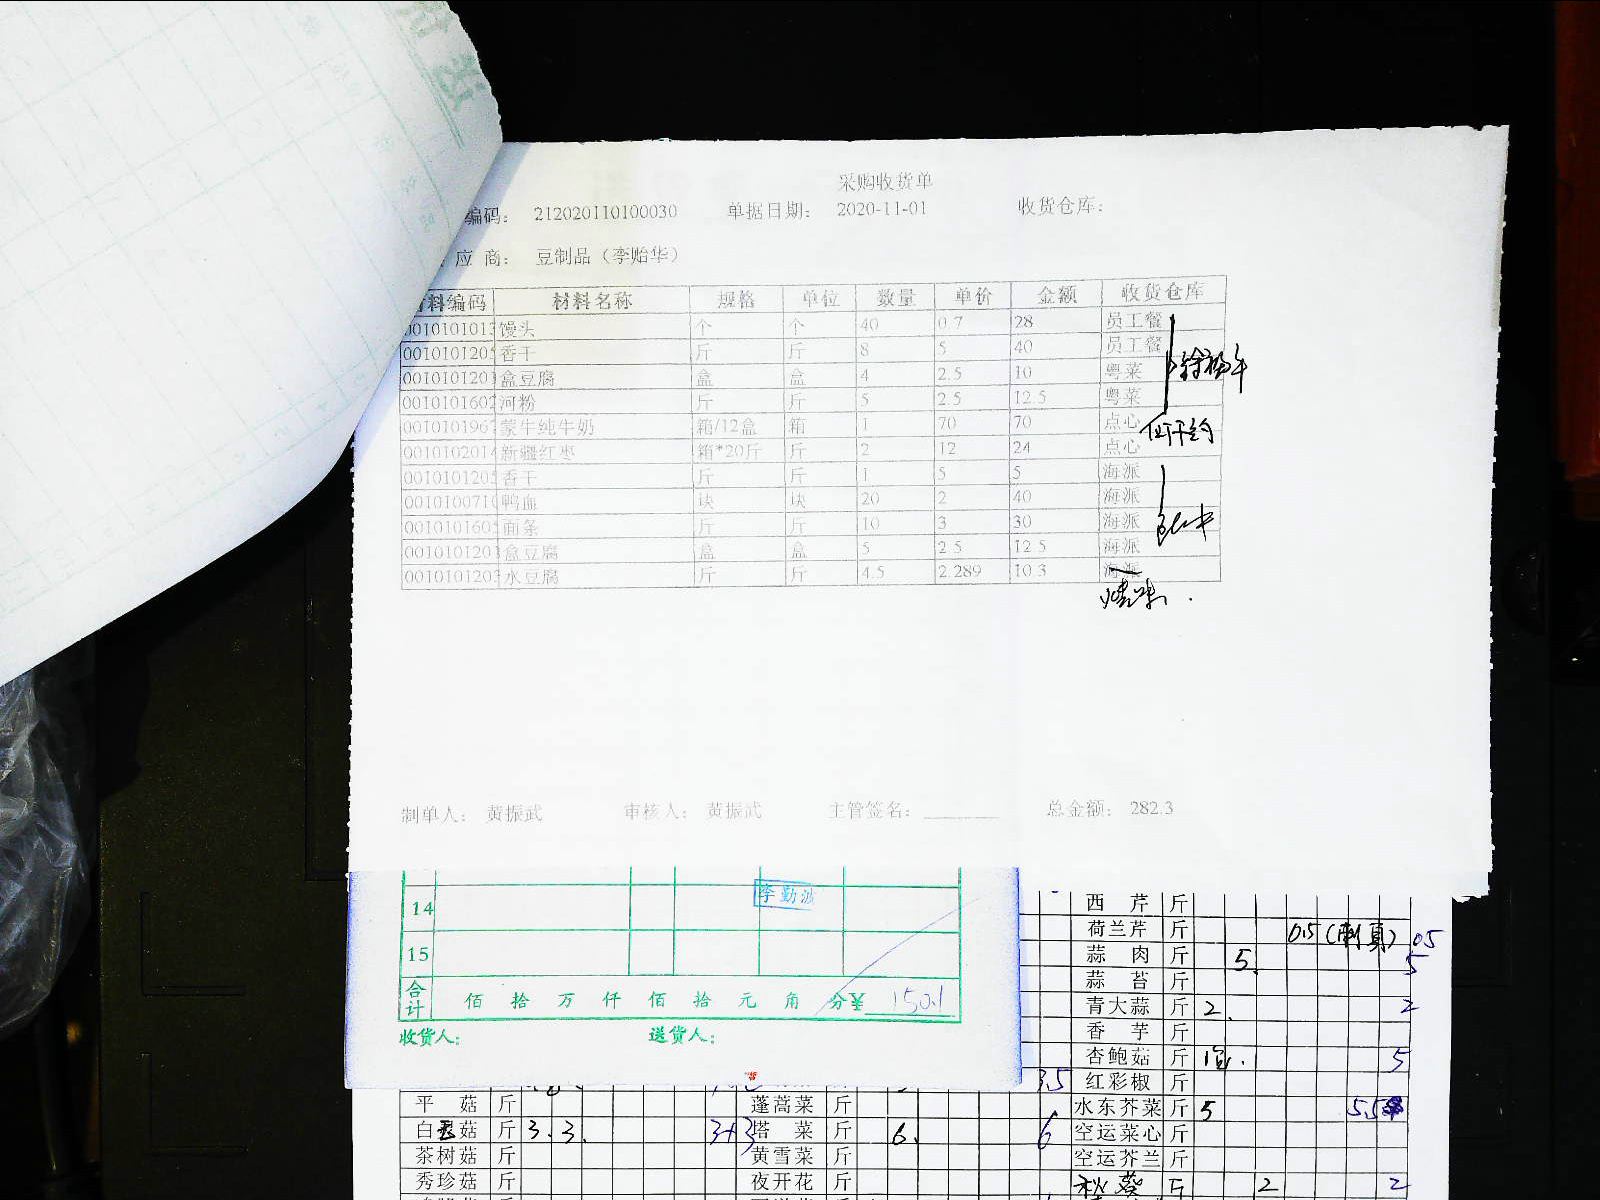 采购收货单
编码： 212020110100030 单据日期： 2020-11-01 收货仓库：
应 商： 豆制品（李贻华）
料编码 材料名称 规格 单位 数量 单价 金额 收货仓库
001010101 馒头 个 个 40 0.7 28 员工餐
00101012 香干 斤 斤 8 5 40 员工餐
001010120 盒豆腐 盒 盒 4 2.5 10 粤菜
001010160 河粉 斤 斤 5 2.5 12.5 粤菜
001010196 蒙牛纯牛奶 箱/12盒 箱 1 70 70 点心
001010201 新疆红枣 箱*20斤 斤 2 12 24 点心
001010120 香干 斤 斤 1 5 5 海派
001010071 鸭血 块 块 20 2 40 海派
001010160 面条 斤 斤 10 3 30 海派
001010120 盒豆腐 盒 盒 5 2.5 12.5 海派
001010120 水豆腐 斤 斤 4.5 2.289 10.3 海派
烧味
制单人： 黄振武 审核人： 黄振武 主管签名： 总金额： 282.3
14 李勤
15
合计 佰 拾 万 仟 佰 拾 元 角 分 ¥ 150.1
收货人： 送货人：
西 芹 斤
荷兰芹 斤 0.5 0.5
蒜 肉 斤 5. 5
蒜 苔 斤
青大蒜 斤 2. 2
香 芋 斤
杏鲍菇 斤 5
3.5 红彩椒 斤
平 菇 斤 蓬蒿菜 斤 水东芥菜 斤 5 5.5
白玉菇 斤 3. 3. 3+3 塔 菜 斤 6. 6 空运菜心 斤
茶树菇 斤 黄雪菜 斤 空运芥兰 斤
秀珍菇 斤 夜开花 斤 秋葵 斤 2 2